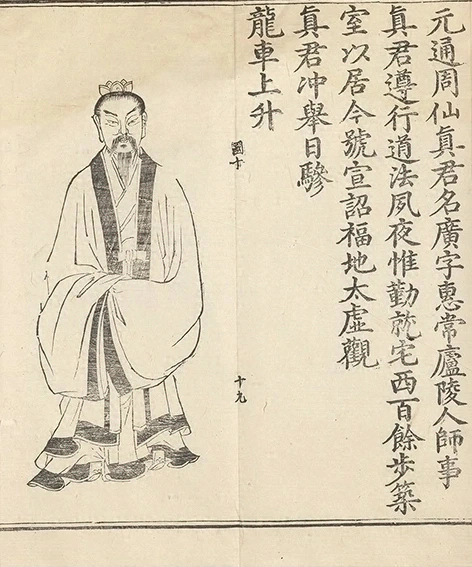 元通周仙眞君名廣字惠常廬陵人師事
眞君遵行道法夙夜惟勤就宅西百餘步築
室以居今號宣詔福地太虛觀
眞君冲舉日驂
龍車上升
圖十
十九